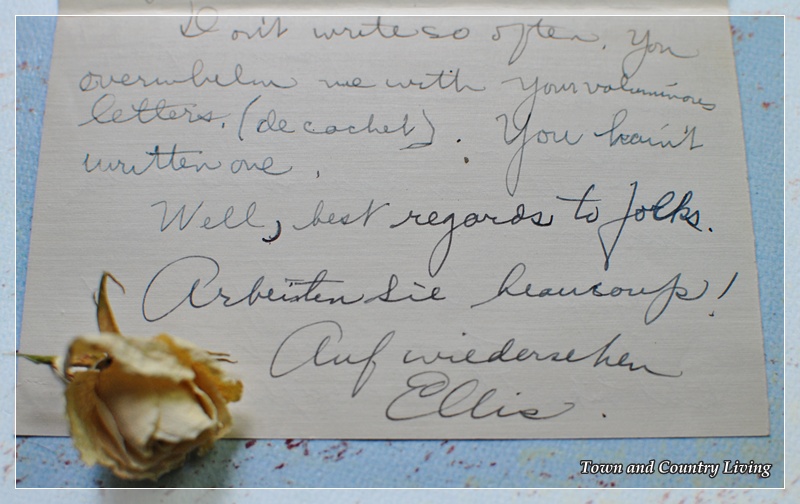 Don't write so often. You
overwhelm me with your voluminous
letters. (de cachet). You hain't
written one.
Well, best regards to folks.
Arbeiten Sie beaucoup!
Auf wiedersehen
Ellis.
Town and Country Living